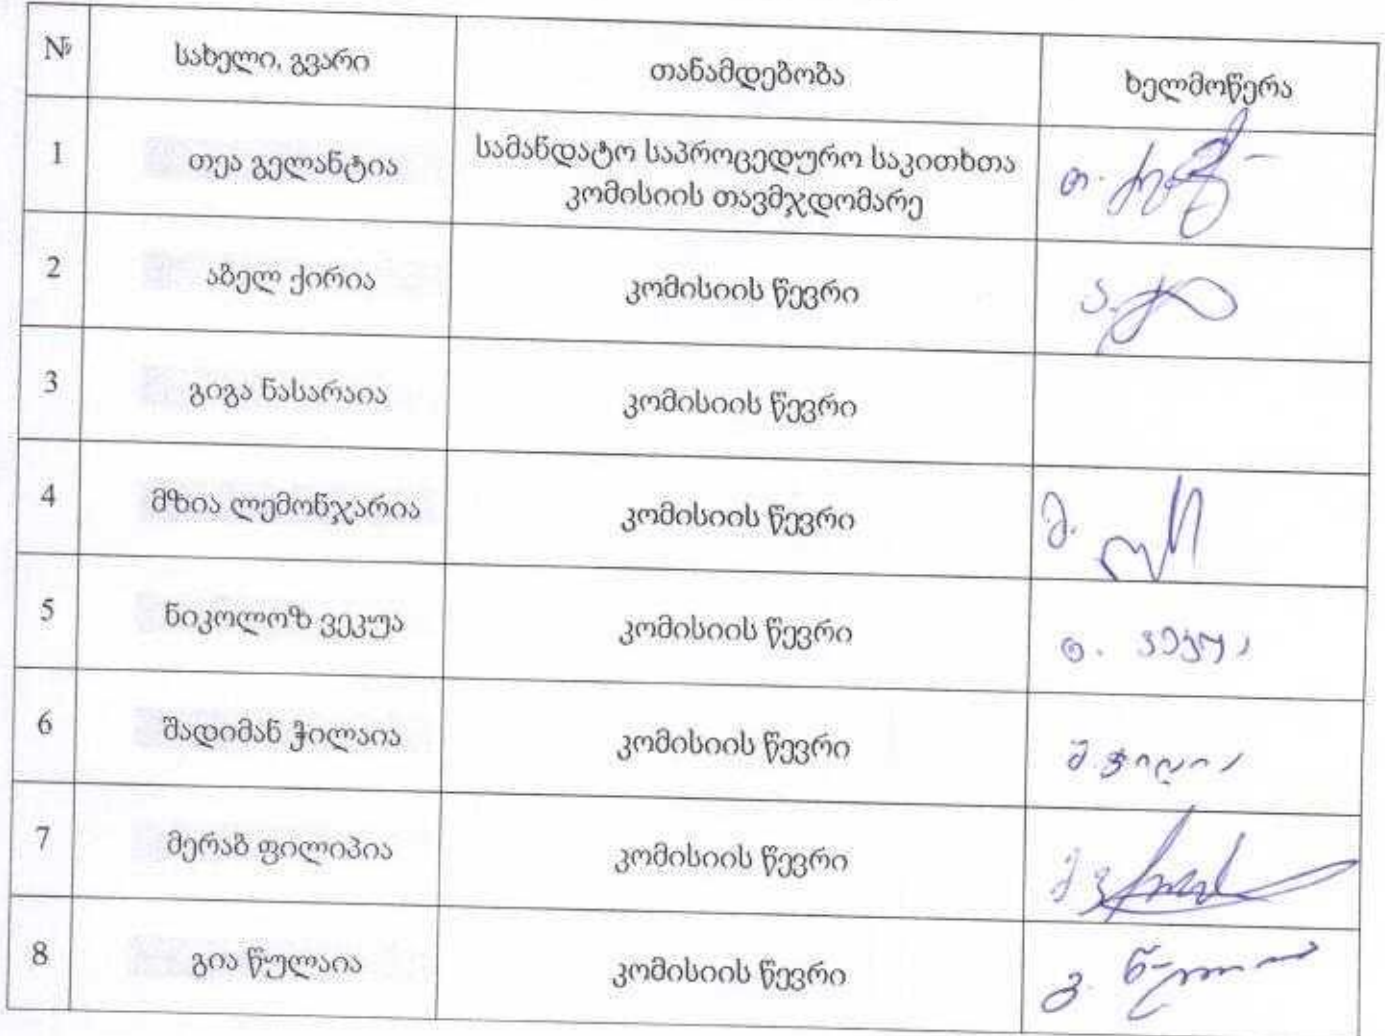 № სახელი, გვარი თანამდებობა ხელმოწერა
1 თეა გელანტია სამანდატო საპროცედურო საკითხთა
კომისიის თავმჯდომარე
2 აბელ ქირია კომისიის წევრი
3 გიგა ნასარაია კომისიის წევრი
4 მზია ლემონჯარია კომისიის წევრი
5 ნიკოლოზ ვეკუა კომისიის წევრი
6 შადიმან ჭილაია კომისიის წევრი შ. ჭილაია
7 მერაბ ფილიპია კომისიის წევრი
8 გია წულაია კომისიის წევრი